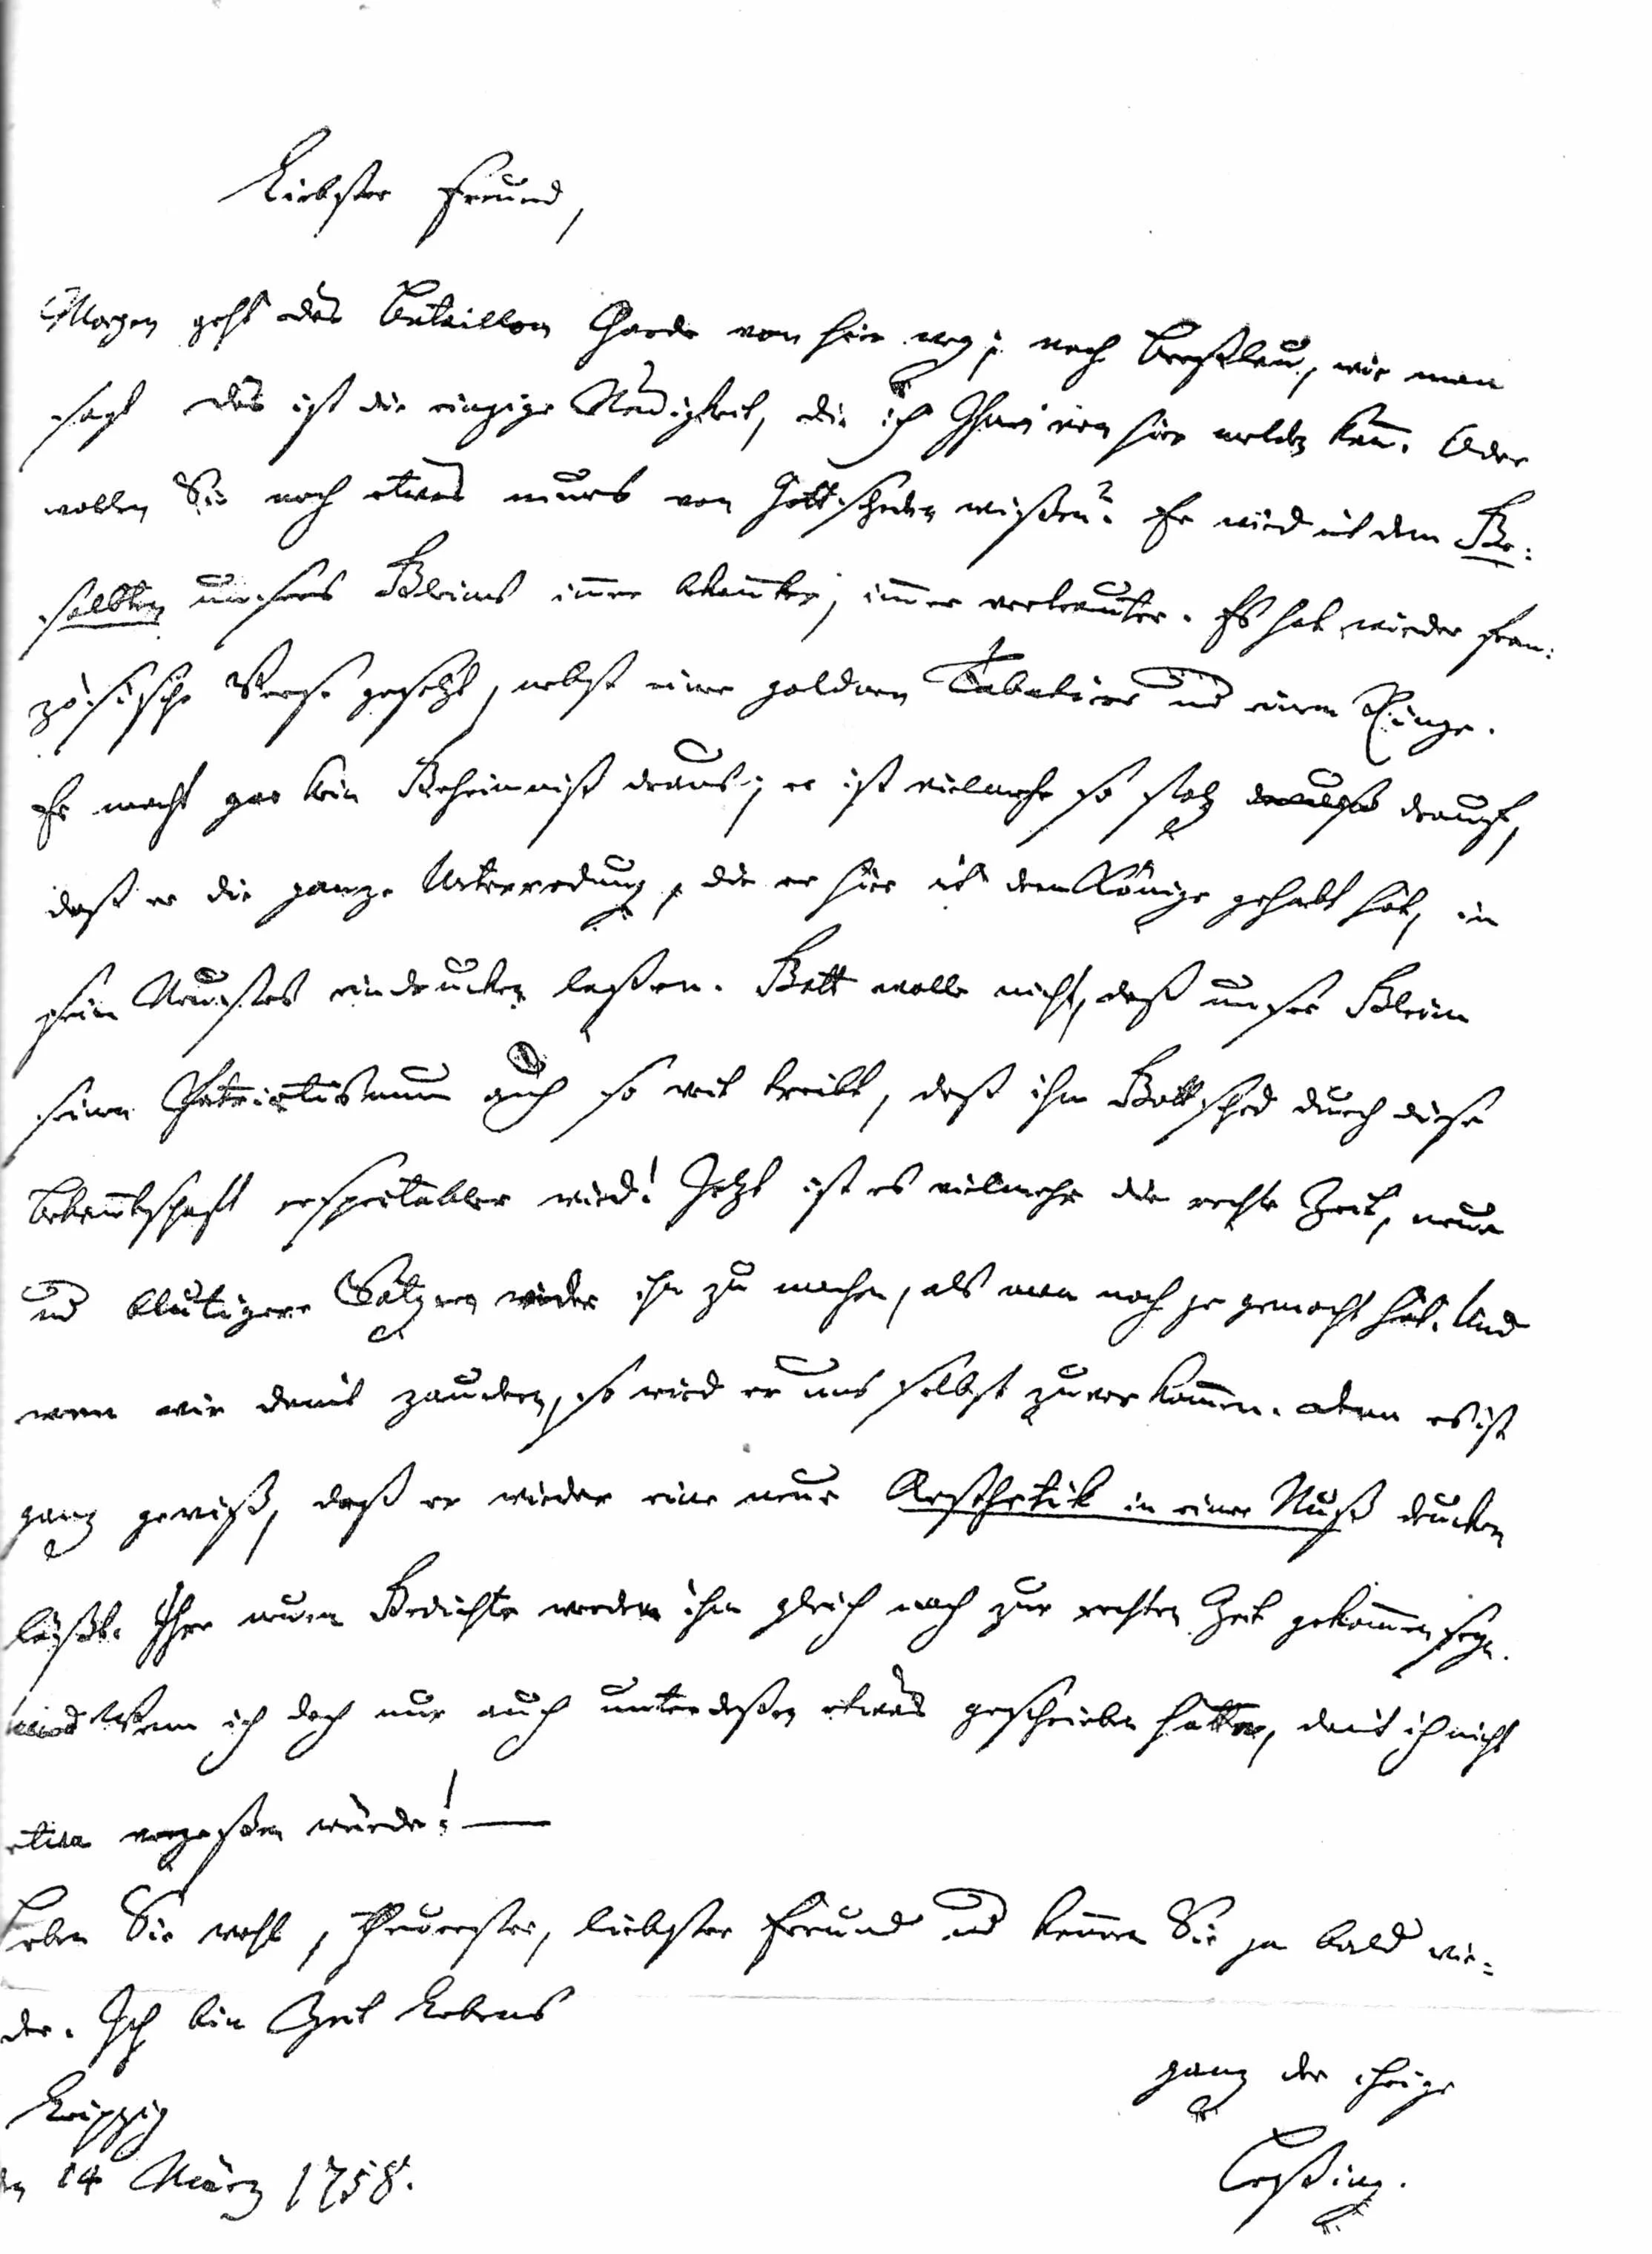 Liebster Freund,
Morgen geht das Bataillon Garde von hier weg; nach Breßlau, wie man
sagt Das ist die einzige Neuigkeit, die ich Ihnen von hier melden kan̄. Oder
wollen Sie noch etwas neues von Gottscheden wißen? Er wird mit dem Be:
selbten unsers Gleims im̄er bekan̄ter, im̄er vertrauter. Es hat wieder fran:
zösische Verse gesetzt, nebst einer goldnen Tabatiere und einem Ringe.
Er macht gar kein Geheimniß draus; er ist vielmehr so stolz drauf,
daß er die ganze Unterredung, die er hier mit dem Könige gehabt hat, in
sein Neuestes eindrucken laßen. Gott wolle nicht, daß unser Gleim
seinen Patriotismum auch so weit treibt, daß ihm Gottsched durch diese
Bekan̄tschaft respectabler wird! Jetzt ist es vielmehr die rechte Zeit, neue
und blutigere Satyren wider ihn zu machen, als man noch je gemacht hat. Und
wenn wir damit zaudern, so wird er uns selbst zuvor kom̄en. denn es ist
ganz gewiß, daß er wieder eine neue Aesthetik in einer Nuß drucken
läßt. Ihre neuen Gedichte werden ihm gleich noch zur rechten Zeit gekom̄en seyn.
Wenn ich doch nur auch unterdeßen etwas geschrieben hätte, damit ich nicht
etwa vergeßen würde! —
Leben Sie wohl, theuerster, liebster Freund und kom̄en Sie ja bald wie=
der. Ich bin Zeit Lebens
ganz der ihrige
Leßing.
Leipzig
den 14 März 1758.